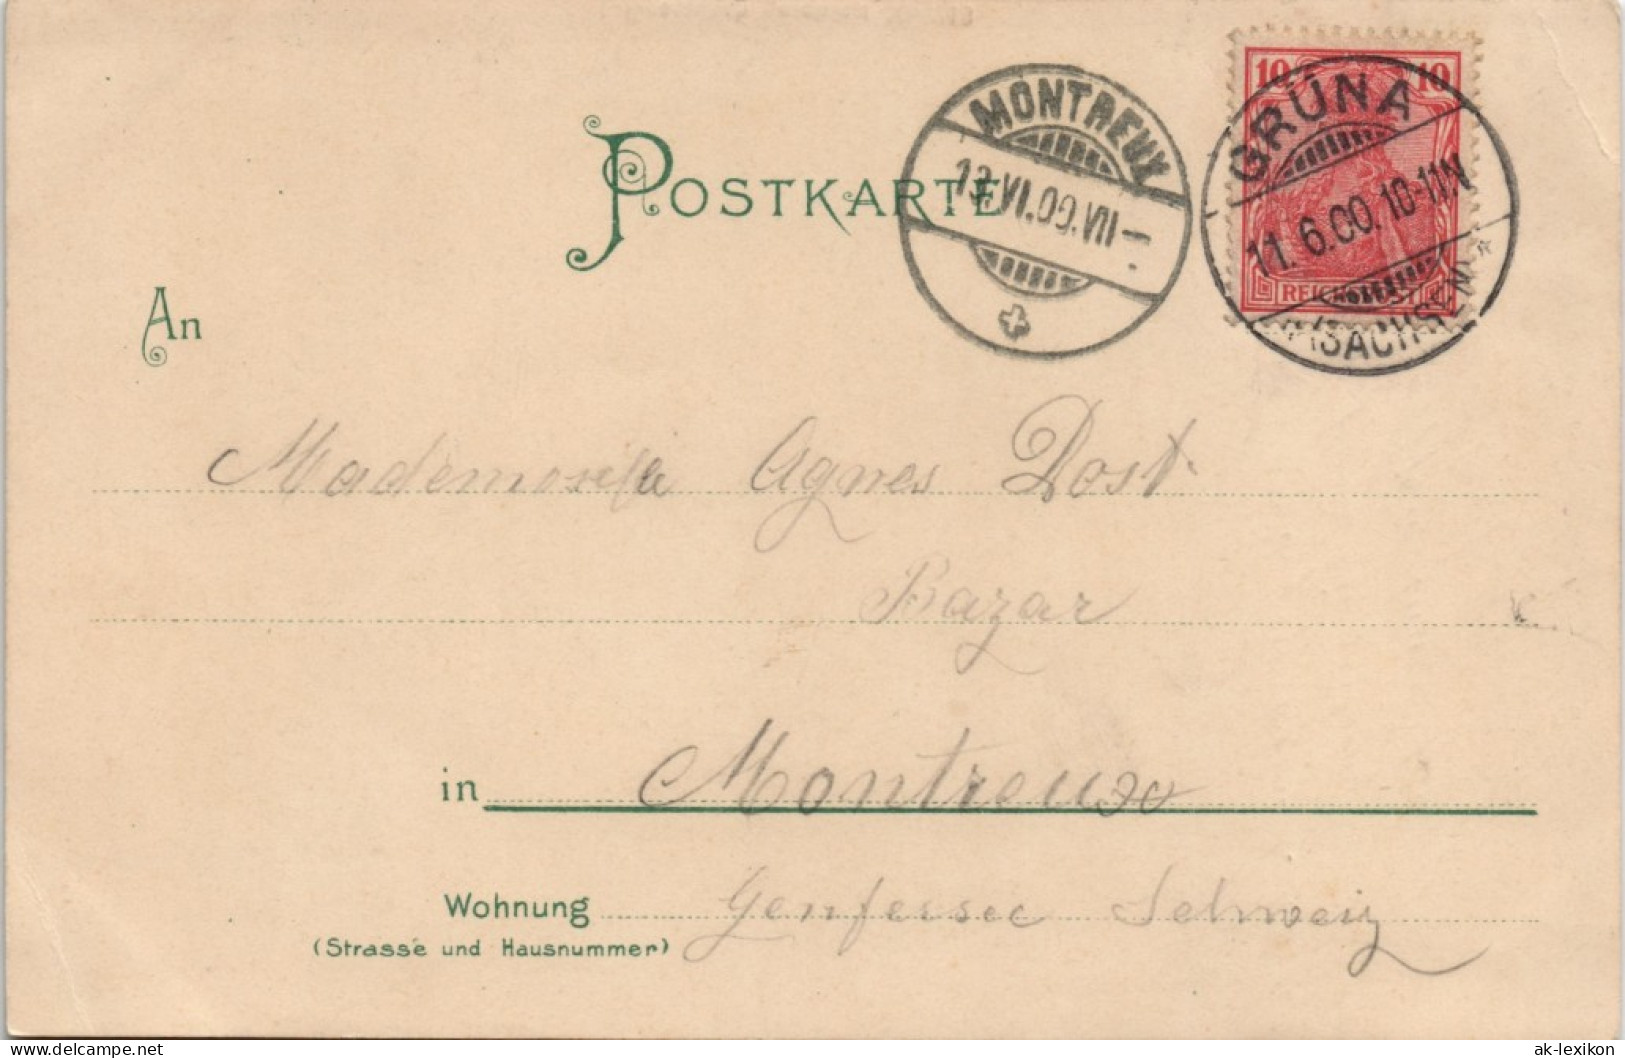 10 10
REICHSPOST
GRÜNA
11. 6.00. 10-11N
(SACHSEN) *
MONTREUX
13.VI.00.VII-
POSTKARTE
An
Mademoiselle Agnes Dost
Bazar
in Montreux
Wohnung Genfersee Schweiz
(Strasse und Hausnummer)
https://www.delcampe.net
ak-lexikon